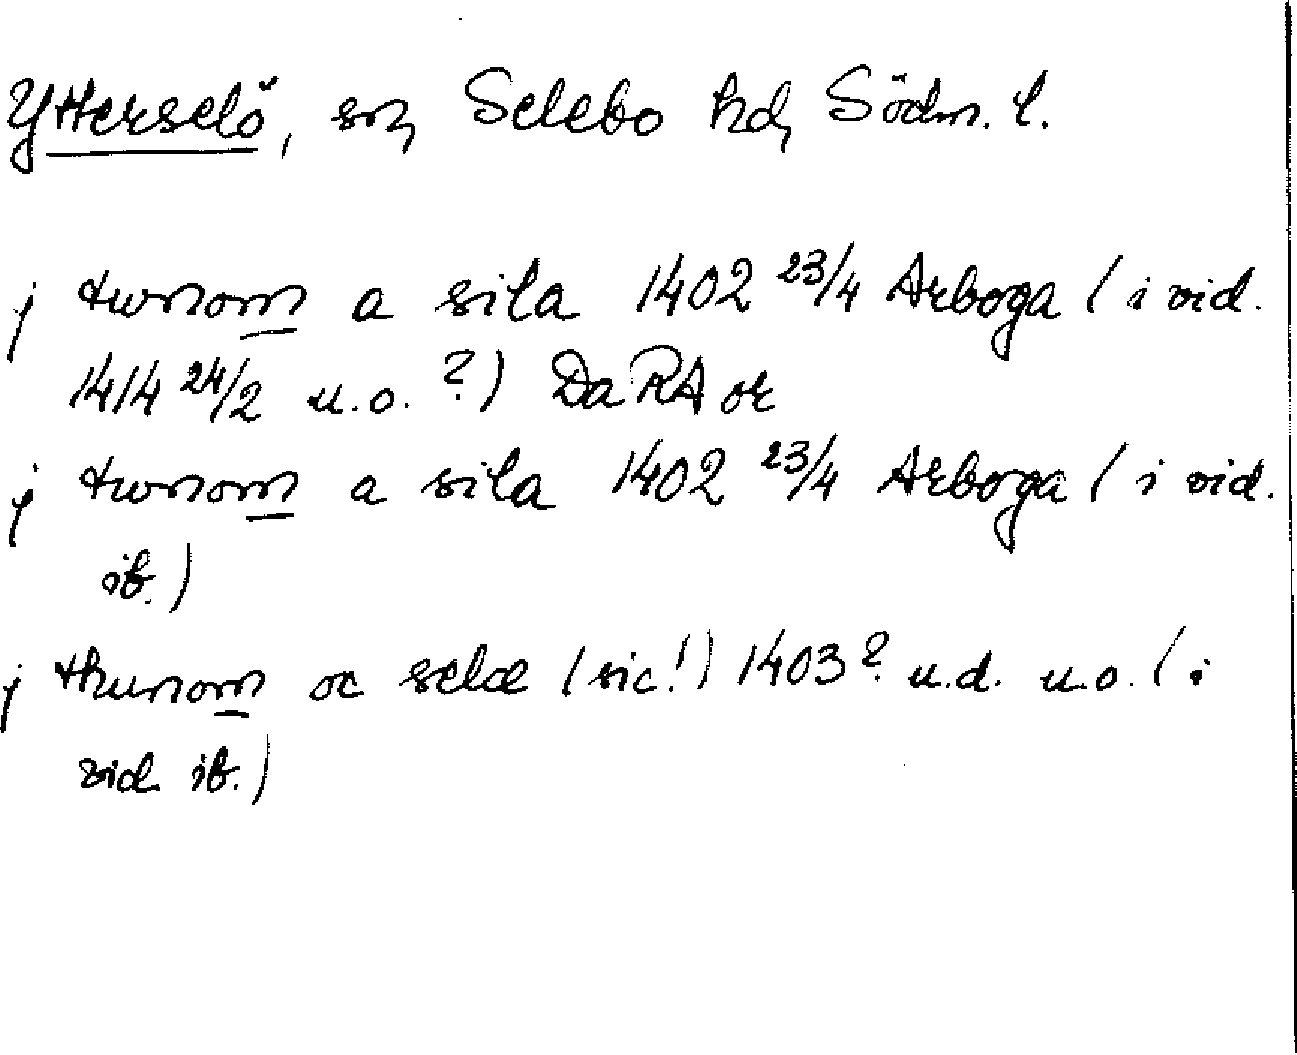 Ytterselö, sn, Selebo hd, Södm. l.
j twnom a sila 1402 23/4 Arboga (i vid.
1414 24/2 u.o. ?) DaRA or
j twnom a sila 1402 23/4 Arboga (i vid.
ib.)
j thunom oc selæ (sic!) 1403? u.d. u.o. (i
vid. ib.)